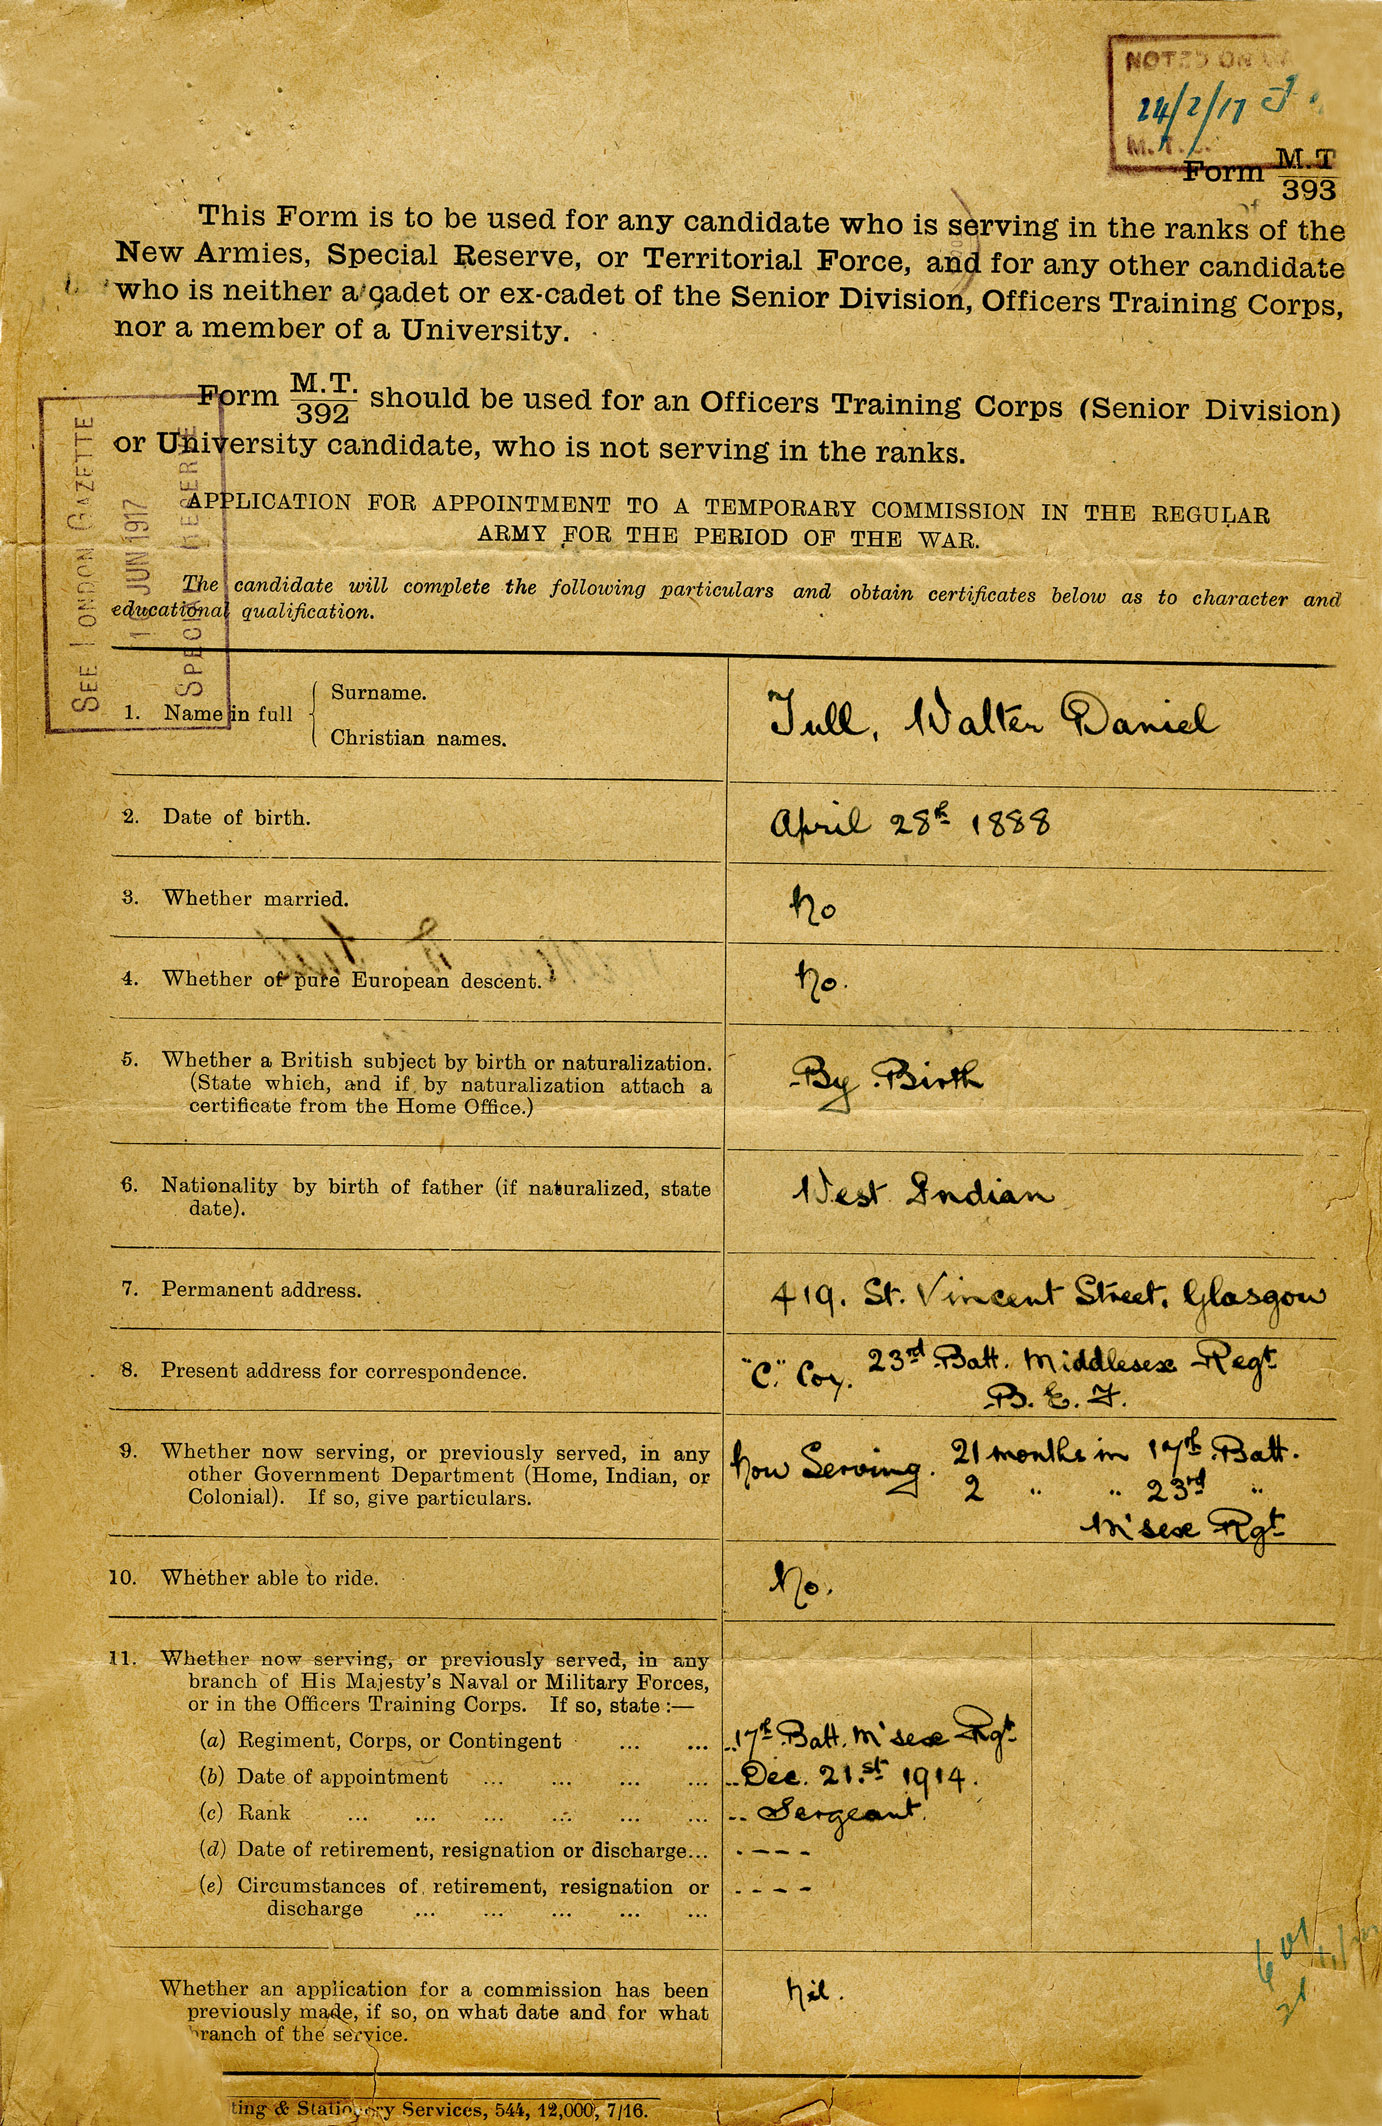 NOTED ON
24/2/17
M.T.
Form M.T
393
This Form is to be used for any candidate who is serving in the ranks of the
New Armies, Special Reserve, or Territorial Force, and for any other candidate
who is neither a cadet or ex-cadet of the Senior Division, Officers Training Corps,
nor a member of a University.
Form M.T.
392 should be used for an Officers Training Corps (Senior Division)
or University candidate, who is not serving in the ranks.
SEE LONDON GAZETTE
JUN 1917
SPECIAL RESERVE
APPLICATION FOR APPOINTMENT TO A TEMPORARY COMMISSION IN THE REGULAR
ARMY FOR THE PERIOD OF THE WAR.
The candidate will complete the following particulars and obtain certificates below as to character and
educational qualification.
1. Name in full { Surname.
Christian names.
Tull, Walter Daniel
2. Date of birth.
April 28th 1888
3. Whether married.
No
4. Whether of pure European descent.
No.
5. Whether a British subject by birth or naturalization.
(State which, and if by naturalization attach a
certificate from the Home Office.)
By Birth
6. Nationality by birth of father (if naturalized, state
date).
West Indian
7. Permanent address.
419. St. Vincent Street, Glasgow
8. Present address for correspondence.
"C." Coy. 23rd Batt. Middlesex Regt
B. E. F.
9. Whether now serving, or previously served, in any
other Government Department (Home, Indian, or
Colonial). If so, give particulars.
Now Serving. 21 months in 17th Batt.
2 " " 23rd "
M'sex Rgt
10. Whether able to ride.
No.
11. Whether now serving, or previously served, in any
branch of His Majesty's Naval or Military Forces,
or in the Officers Training Corps. If so, state :—
(a) Regiment, Corps, or Contingent ... ... 17th Batt. M'sex Rgt
(b) Date of appointment ... ... ... ... Dec. 21st 1914.
(c) Rank ... ... ... ... ... ... Sergeant.
(d) Date of retirement, resignation or discharge... - - - -
(e) Circumstances of retirement, resignation or - - - -
discharge ... ... ... ... ...
Whether an application for a commission has been
previously made, if so, on what date and for what
branch of the service.
Nil.
ting & Stationery Services, 544, 12,000, 7/16.